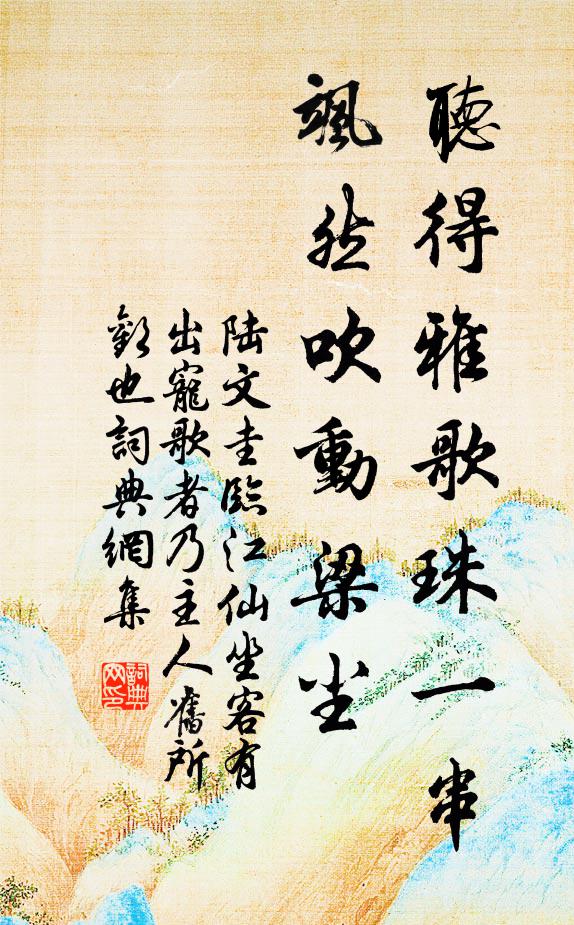 聽得雅歌珠一串
颯然吹動梁尘
陆文圭臨江仙坐客有
出寵歌者乃主人舊所
歡也詞典網集
詞典网印